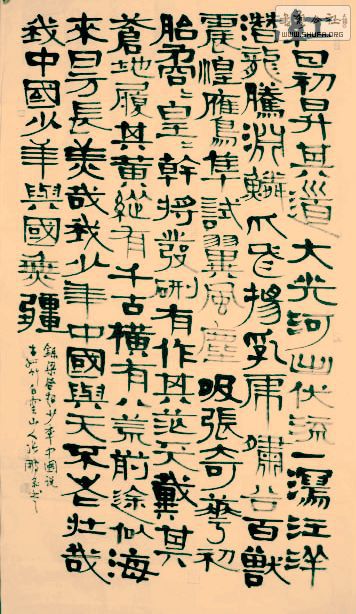 日初昇其道大光河出伏流一瀉汪洋
潛龍騰淵鱗爪飛揚乳虎嘯谷百獸
震惶鷹隼試翼風塵吸張奇華初
胎矞〻皇〻幹將發硎有作其芒天戴其
蒼地履其黃縱有千古橫有八荒前途似海
來日方長美哉我少年中國與天不老壯哉
我中國少年與國無疆
錄梁啓超少年中國說
白雲山人
WWW.SHUFA.ORG